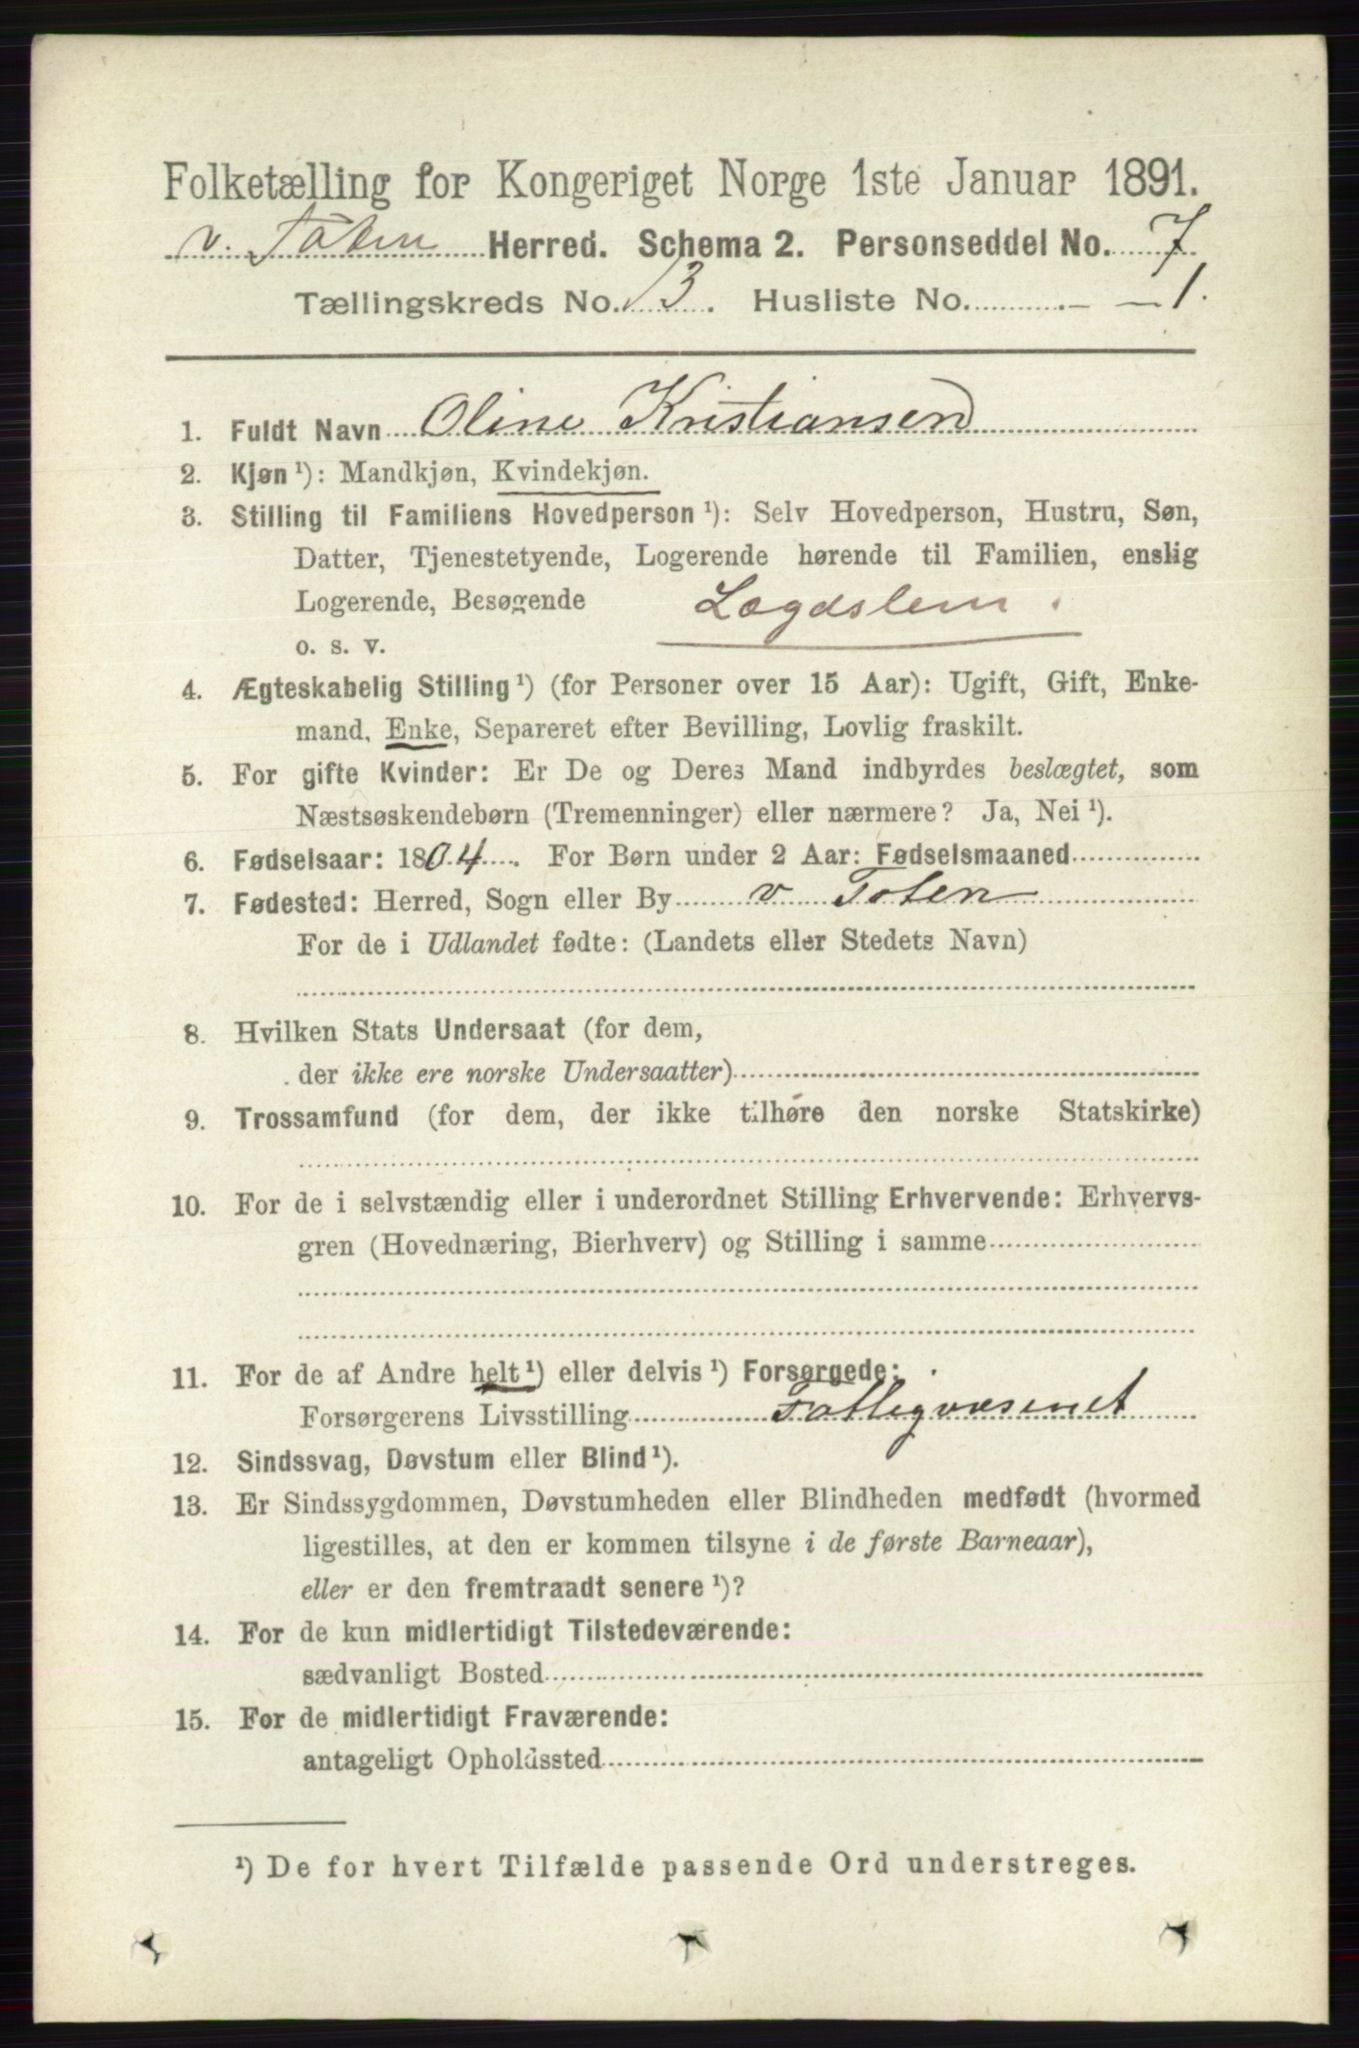 Folketælling for Kongeriget Norge 1ste Januar 1891.
v. Toten Herred. Schema 2. Personseddel No. 7
Tællingskreds No. 13. Husliste No. 1.
1. Fuldt Navn Oline Kristiansen
2. Kjøn ¹): Mandkjøn, Kvindekjøn.
3. Stilling til Familiens Hovedperson ¹): Selv Hovedperson, Hustru, Søn,
Datter, Tjenestetyende, Logerende hørende til Familien, enslig
Logerende, Besøgende Lægdslem.
o. s. v.
4. Ægteskabelig Stilling ¹) (for Personer over 15 Aar): Ugift, Gift, Enke-
mand, Enke, Separeret efter Bevilling, Lovlig fraskilt.
5. For gifte Kvinder: Er De og Deres Mand indbyrdes beslægtet, som
Næstsøskendebørn (Tremenninger) eller nærmere? Ja, Nei ¹).
6. Fødselsaar: 1804. For Børn under 2 Aar: Fødselsmaaned
7. Fødested: Herred, Sogn eller By v Toten
For de i Udlandet fødte: (Landets eller Stedets Navn)
8. Hvilken Stats Undersaat (for dem,
der ikke ere norske Undersaatter)
9. Trossamfund (for dem, der ikke tilhøre den norske Statskirke)
10. For de i selvstændig eller i underordnet Stilling Erhvervende: Erhvervs-
gren (Hovednæring, Bierhverv) og Stilling i samme
11. For de af Andre helt ¹) eller delvis ¹) Forsørgede:
Forsørgerens Livsstilling Fattigvæsenet
12. Sindssvag, Døvstum eller Blind ¹).
13. Er Sindssygdommen, Døvstumheden eller Blindheden medfødt (hvormed
ligestilles, at den er kommen tilsyne i de første Barneaar),
eller er den fremtraadt senere ¹)?
14. For de kun midlertidigt Tilstedeværende:
sædvanligt Bosted
15. For de midlertidigt Fraværende:
antageligt Opholdssted
¹) De for hvert Tilfælde passende Ord understreges.